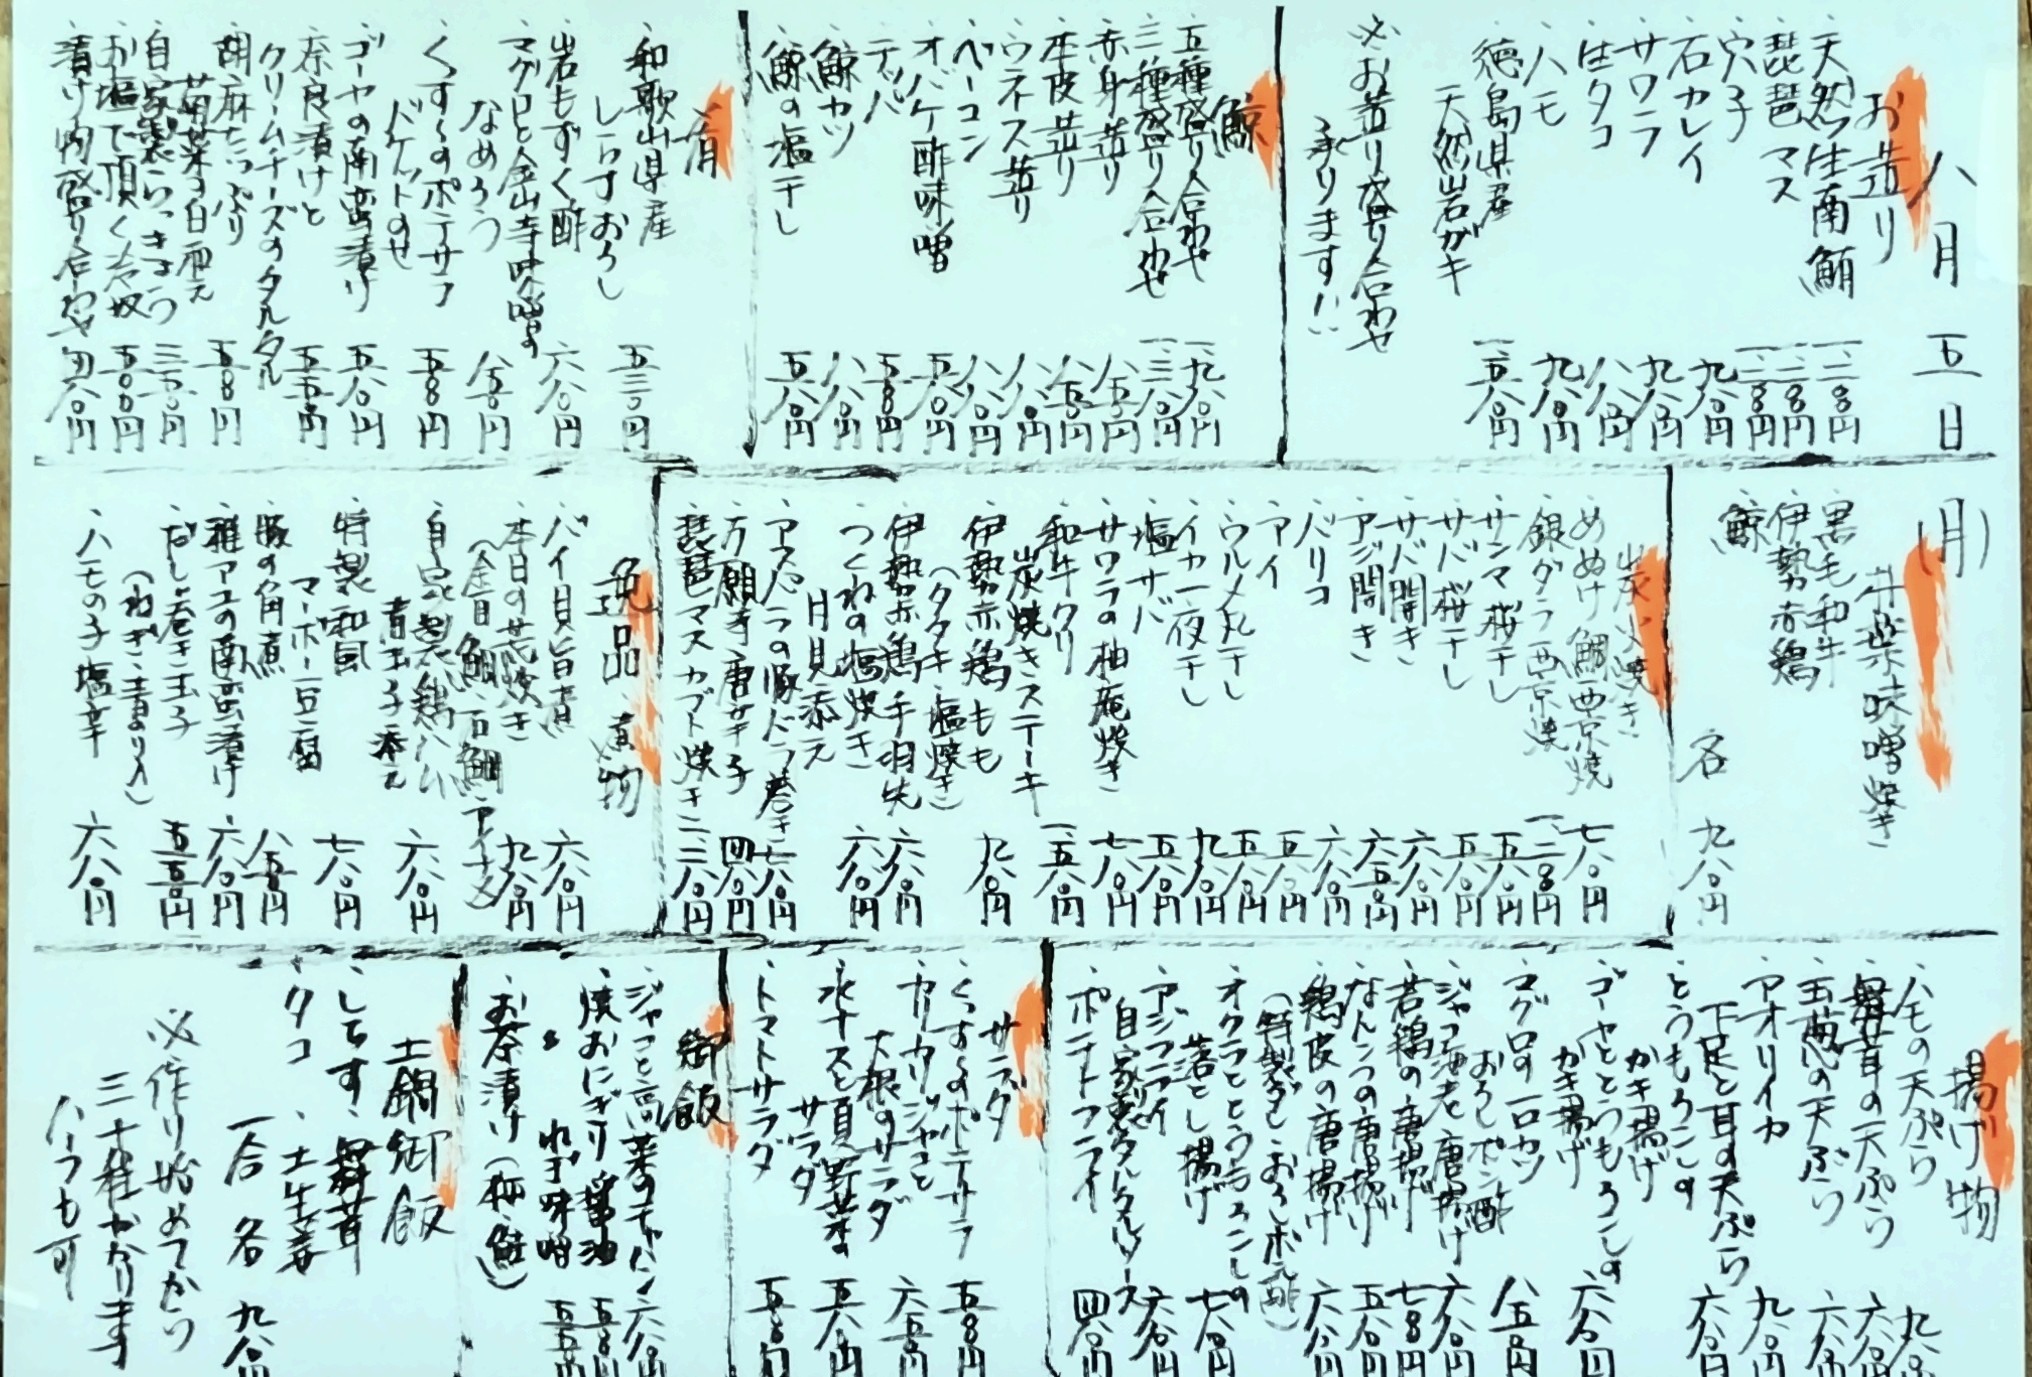 八月五日(月)
お造り
天然生南鮪 一、二八〇円
琵琶マス 一、二八〇円
穴子 一、二八〇円
石カレイ 九八〇円
サワラ 九八〇円
生タコ 八八〇円
ハモ 九八〇円
徳島県産
天然岩ガキ 一、五八〇円
※お造り盛り合わせ
承ります!!
鯨
五種盛り合わせ 一、九八〇円
三種盛り合わせ 一、三八〇円
赤身造り 八五〇円
本皮造り 八五〇円
ウネス造り 八八〇円
ベーコン 八八〇円
オバケ酢味噌 五八〇円
テッパ 五八〇円
鯨カツ 八八〇円
鯨の塩干し 五八〇円
肴
和歌山県産
しらすおろし 五三〇円
岩もずく酢 六八〇円
マグロと金山寺味噌の
なめろう 八五〇円
くずしのポテサラ
バケットのせ 五八〇円
ゴーヤの南蛮漬け 五八〇円
奈良漬けと
クリームチーズのタルタル 五五〇円
胡麻たっぷり
菊菜の白和え 五八〇円
自家製らっきょう 三五〇円
お塩で頂く冷奴 五〇〇円
漬け物盛り合わせ 四八〇円
朴葉味噌焼き
黒毛和牛
伊勢赤鶏
鯨
各 九八〇円
炭火焼き
めぬけ鯛西京焼 七八〇円
銀ダラ西京焼 一、二八〇円
サンマ桜干し 五八〇円
サバ桜干し 五八〇円
サバ開き 六八〇円
アジ開き 六五〇円
バリコ 六八〇円
アイ 五八〇円
ウルメ丸干し 五八〇円
イカ一夜干し 九八〇円
塩サバ 五八〇円
サワラの柚庵焼き 七八〇円
和牛クリ
炭焼きステーキ 一、五八〇円
伊勢赤鶏もも
(タタキ・塩焼き) 九八〇円
伊勢赤鶏手羽先 六八〇円
つくねの塩焼き
月見添え 六八〇円
アスパラの豚バラ巻き 七八〇円
万願寺唐辛子 四八〇円
琵琶マスカブト焼き 二二八〇円
逸品 煮物
バイ貝旨煮 六八〇円
本日の荒炊き 九八〇円
(金目鯛・石鯛・アイナメ)
自家製鶏ハム
青玉子添え 六八〇円
特製和風
マーボー豆腐 七八〇円
豚の角煮 八五〇円
稚アユの南蛮漬け 六八〇円
だし巻き玉子 五五〇円
(ねぎ・青のり入)
ハモの子塩辛 六八〇円
揚げ物
ハモの天ぷら 九八〇
舞茸の天ぷら 六八〇円
玉葱の天ぷら 六八〇円
アオリイカ
下足と耳の天ぷら 九八〇円
とうもろこしの
かき揚げ 六八〇円
ゴーヤととうもろこしの
かき揚げ 六八〇円
マグロの一口カツ
おろしポン酢 八五〇円
ジャコ海老唐揚げ 六八〇円
若鶏の唐揚げ 七八〇円
なんこつの唐揚げ 五八〇円
鶏皮の唐揚げ 六八〇円
(特製だし・おろしポン酢)
オクラととうもろこしの
落とし揚げ 七八〇円
アジフライ
自家製タルタルソース 六八〇円
ポテトフライ 四八〇円
サラダ
くずしのポテサラ 五八〇円
カリカリジャコと
大根のサラダ 六五〇円
水ナスと夏野菜の
サラダ 五八〇円
トマトサラダ 五八〇円
御飯
ジャコと高菜のチャーハン 六八〇円
焼おにぎり 醤油 五八〇円
〃 ねぎ味噌 五五〇円
お茶漬け(梅・鮭)
土鍋御飯
・しらす・舞茸
・タコ・土生姜
一合 各 九八〇円
※作り始めてから
三十程かかります
ハーフも可